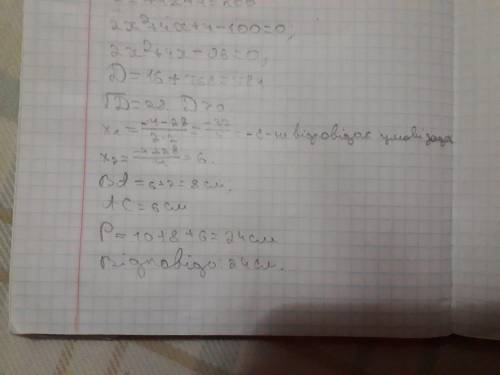 2x²+4x+4-100=0,
2x²+4x-96=0,
D=16+768=784
√D=28. D>0
x₁=(-4-28)/(2·2)=(-32)/4=-8-не відповідає умові задачі
x₂=(-4+28)/4=6.
BA=6+2=8 см,
AC=6 см
P=10+8+6=24 см
Відповідь: 24 см.